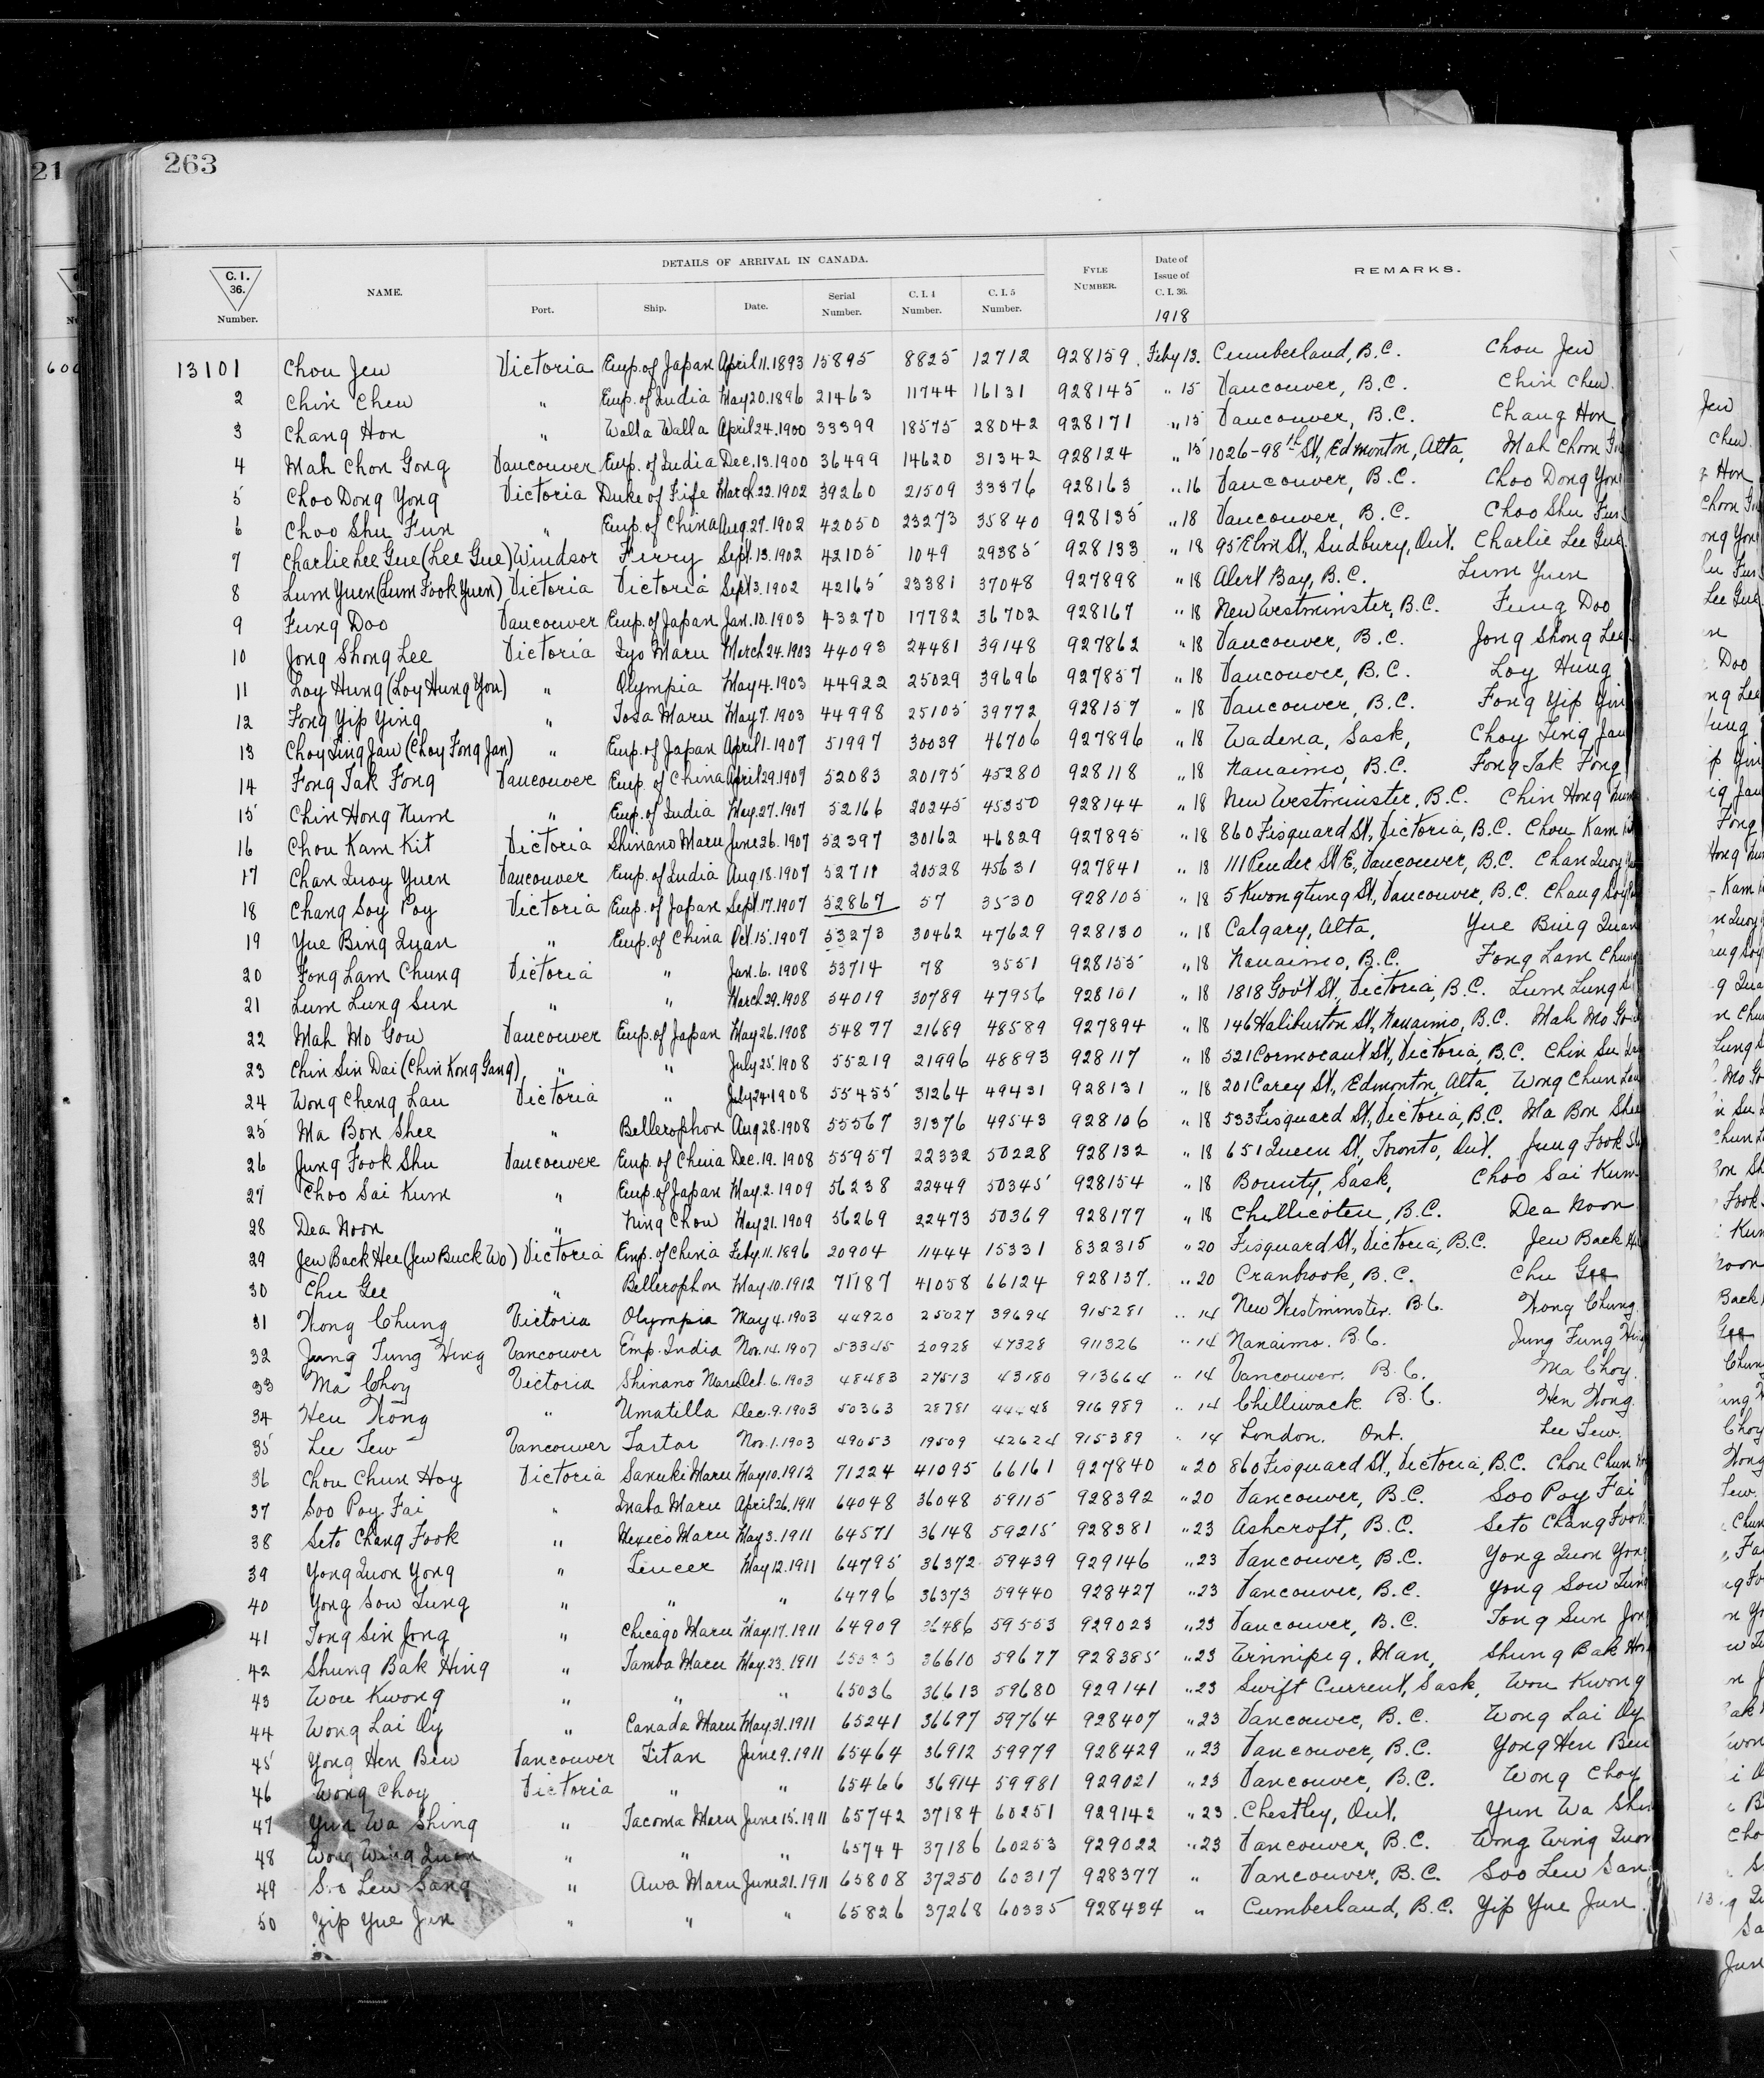 21
263
DETAILS OF ARRIVAL IN CANADA.
C. I. 36. Number. NAME. Port. Ship. Date. Serial Number. C. I. 4 Number. C. I. 5 Number. FYLE NUMBER. Date of Issue of C. I. 36. 1918 REMARKS.
13101 Chou Jew Victoria Emp. of Japan April 11. 1893 15895 8825 12712 928159 Feby 13. Cumberland, B.C. Chou Jew
2 Chin Chew " Emp. of India May 20. 1896 21463 11744 16131 928145 " 15 Vancouver, B.C. Chin Chew.
3 Chang Hon " Walla Walla April 24. 1900 33399 18575 28042 928171 " 15 Vancouver, B.C. Chang Hon
4 Mah Chon Gong Vancouver Emp. of India Dec. 13. 1900 36499 14620 31342 928124 " 15 1026-98th St., Edmonton, Alta, Mah Chon
5 Choo Dong Yong Victoria Duke of Fife March 22. 1902 39260 21509 33376 928163 " 16 Vancouver, B.C. Choo Dong Yong
6 Choo Shu Fun " Emp. of China Aug 27. 1902 42050 23273 35840 928135 " 18 Vancouver, B.C. Choo Shu Fun
7 Charlie Lee Gue (Lee Gue) Windsor Ferry Sept. 13. 1902 42105 1049 29385 928133 " 18 95 Elm St., Sudbury, Ont. Charlie Lee Gue
8 Lum Yuen (Lum Fook Yuen) Victoria Victoria Sept 3. 1902 42165 23381 37048 927898 " 18 Alert Bay, B.C. Lum Yuen
9 Fung Doo Vancouver Emp. of Japan Jan. 10. 1903 43270 17782 36702 928167 " 18 New Westminster, B.C. Fung Doo
10 Jong Shong Lee Victoria Iyo Maru March 24. 1903 44093 24481 39148 927862 " 18 Vancouver, B.C. Jong Shong Lee
11 Loy Hung (Loy Hung You) " Olympia May 4. 1903 44922 25029 39696 927857 " 18 Vancouver, B.C. Loy Hung
12 Fong Yip Ying " Tosa Maru May 7. 1903 44998 25105 39772 928157 " 18 Vancouver, B.C. Fong Yip Yin
13 Choy Ting Jan (Choy Fong Jan) " Emp. of Japan April 1. 1907 51997 30039 46706 927896 " 18 Wadena, Sask, Choy Ting Jan
14 Fong Tak Fong Vancouver Emp. of China April 29. 1907 52083 20175 45280 928118 " 18 Nanaimo, B.C. Fong Tak Fong
15 Chin Hong Num " Emp. of India May. 27. 1907 52166 20245 45350 928144 " 18 New Westminster, B.C. Chin Hong Num
16 Chou Kam Kit Victoria Shinano Maru June 26. 1907 52397 30162 46829 927895 " 18 860 Fisguard St., Victoria, B.C. Chou Kam Kit
17 Chan Quoy Yuen Vancouver Emp. of India Aug 18. 1907 52711 20528 45631 927841 " 18 111 Pender St E., Vancouver, B.C. Chan Quoy
18 Chang Soy Poy Victoria Emp. of Japan Sept. 17. 1907 52867 57 3530 928105 " 18 5 Kwongtung St., Vancouver, B.C. Chang Soy
19 Yue Bing Quan " Emp. of China Oct. 15. 1907 53273 30462 47629 928130 " 18 Calgary, Alta, Yue Bing Quan
20 Fong Lam Chung Victoria " Jan. 6. 1908 53714 78 3551 928155 " 18 Nanaimo, B.C. Fong Lam Chung
21 Lum Lung Sun " " March 29. 1908 54019 30789 47956 928101 " 18 1818 Gov't St., Victoria, B.C. Lum Lung S
22 Mah Mo Gow Vancouver Emp. of Japan May 26. 1908 54877 21689 48589 927894 " 18 146 Haliburton St., Nanaimo, B.C. Mah Mo Gow
23 Chin Sin Dai (Chin Kong Gang) " " July 25. 1908 55219 21996 48893 928117 " 18 521 Cormorant St., Victoria, B.C. Chin Su
24 Wong Cheng Lau Victoria " July 24. 1908 55455 31264 49431 928131 " 18 201 Carey St., Edmonton, Alta, Wong Chun Lau
25 Ma Bon Shee " Bellerophon Aug 28. 1908 55567 31376 49543 928106 " 18 533 Fisguard St., Victoria, B.C. Ma Bon Shee
26 Jung Fook Shu Vancouver Emp. of China Dec. 19. 1908 55957 22332 50228 928132 " 18 651 Queen St., Toronto, Ont. Jung Fook Sh
27 Choo Sai Kum " Emp. of Japan May. 2. 1909 56238 22449 50345 928154 " 18 Bounty, Sask, Choo Sai Kum
28 Dea Noon " Ning Chow May 21. 1909 56269 22473 50369 928177 " 18 Chillicoten, B.C. Dea Noon
29 Jew Back Hee (Jew Buck Wo) Victoria Emp. of China Feby. 11. 1896 20904 11444 15331 832315 " 20 Fisguard St., Victoria, B.C. Jew Back
30 Chu Gee " Bellerophon May 10. 1912 71187 41058 66124 928137. " 20 Cranbrook, B.C. Chu Gee
31 Wong Chung Victoria Olympia May 4. 1903 44920 25027 39694 915281 " 14 New Westminster. B.C. Wong Chung.
32 Jung Tung Hing Vancouver Emp. India Nov. 14. 1907 53345 20928 47328 911326 " 14 Nanaimo. B.C. Jung Fung Hing
33 Ma Choy Victoria Shinano Maru Oct. 6. 1903 48483 27513 43180 913664 " 14 Vancouver. B.C. Ma Choy.
34 Hen Wong " Umatilla Dec. 9. 1903 50363 28781 44448 916989 " 14 Chilliwack B.C. Hen Wong.
35 Lee Tew Vancouver Tartar Nov. 1. 1903 49053 19509 42624 915389 " 14 London. Ont. Lee Tew.
36 Chou Chun Hoy Victoria Sanuki Maru May 10. 1912 71224 41095 66161 927840 " 20 860 Fisguard St., Victoria, B.C. Chou Chun
37 Soo Poy Fai " Inaba Maru April 26. 1911 64048 36048 59115 928392 " 20 Vancouver, B.C. Soo Poy Fai
38 Seto Chang Fook " Mexico Maru May 3. 1911 64571 36148 59215 928381 " 23 Ashcroft, B.C. Seto Chang Fook
39 Yong Quon Yong " Teucer May 12. 1911 64795 36372 59439 929146 " 23 Vancouver, B.C. Yong Quon Yong
40 Yong Sow Tung " " " 64796 36373 59440 928427 " 23 Vancouver, B.C. Yong Sow Tun
41 Tong Sin Jong " Chicago Maru May. 17. 1911 64909 36486 59553 929023 " 23 Vancouver, B.C. Tong Sun Jon
42 Shung Bak Hing " Tamba Maru May. 23. 1911 65033 36610 59677 928385 " 23 Winnipeg, Man, Shung Bak
43 Wou Kwong " " " 65036 36613 59680 929141 " 23 Swift Current, Sask, Wou Kwong
44 Wong Lai Oy " Canada Maru May 31. 1911 65241 36697 59764 928407 " 23 Vancouver, B.C. Wong Lai Oy
45 Yong Hen Bew Vancouver Titan June 9. 1911 65464 36912 59979 928429 " 23 Vancouver, B.C. Yong Hen Bew
46 Wong Choy Victoria " " 65466 36914 59981 929021 " 23 Vancouver, B.C. Wong Choy
47 Yun Wa Shing " Tacoma Maru June 15. 1911 65742 37184 60251 929142 " 23 Chestley, Ont. Yun Wa Shin
48 Wong Wing Quon " " " 65744 37186 60253 929022 " 23 Vancouver, B.C. Wong Wing Quon
49 Soo Lew Sang " Awa Maru June 21. 1911 65808 37250 60317 928377 " Vancouver, B.C. Soo Lew San
50 Yip Yue Jun " " " 65826 37268 60335 928434 " Cumberland, B.C. Yip Yue Jun